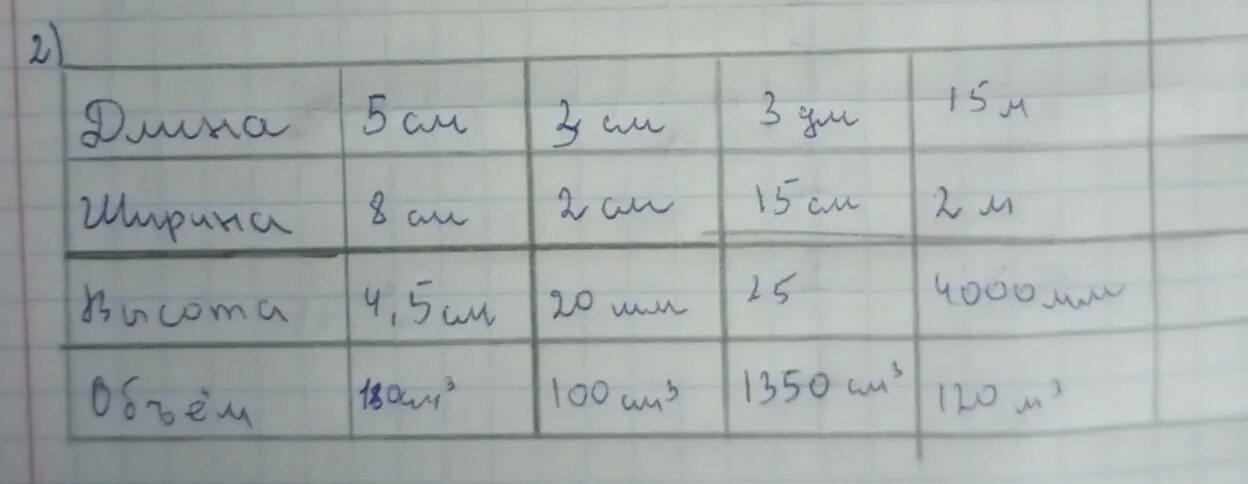 2)
Длина 5 см см 3 дм 15 м
Ширина 8 см 2 см 15 см 2 м
Высота 4,5 см 20 мм 25 4000 мм
Объём 180 см³ 100 см³ 1350 см³ 120 м³